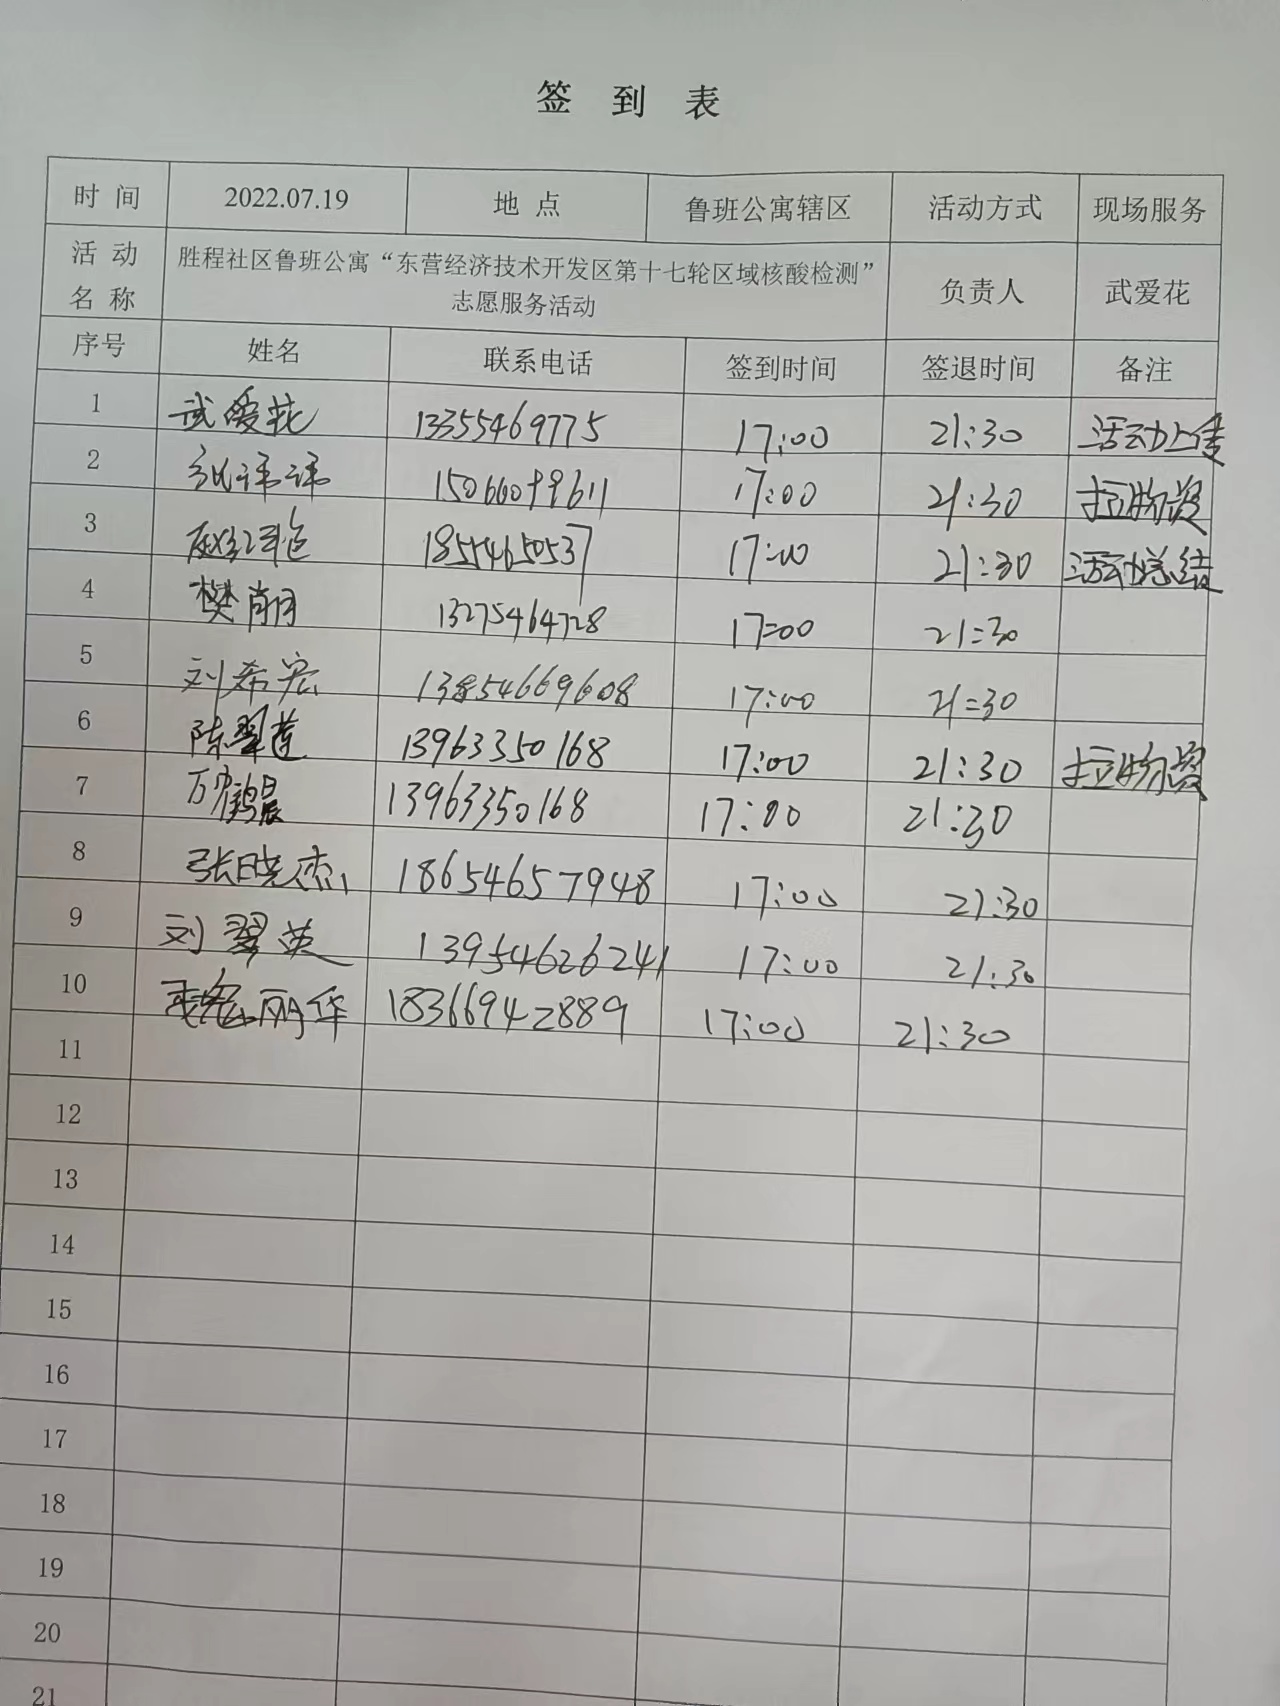 签 到 表
时 间 2022.07.19 地 点 鲁班公寓辖区 活动方式 现场服务
活 动 名 称 胜程社区鲁班公寓“东营经济技术开发区第十七轮区域核酸检测” 负责人 武爱花
志愿服务活动
序号 姓名 联系电话 签到时间 签退时间 备注
1 武爱花 13355469775 17:00 21:30 活动上传
2 15066099611 17:00 21:30 拉物资
3 18554650537 17:00 21:30 活动总结
4 樊肖丽 13275464728 17:00 21:30
5 刘希宏 13854669608 17:00 21:30
6 陈翠莲 13963350168 17:00 21:30 拉物资
7 13963350168 17:00 21:30
8 张晓杰 18654657948 17:00 21:30
9 刘翠英 13954626241 17:00 21:30
10 丽华 18366942889 17:00 21:30
11
12
13
14
15
16
17
18
19
20
21